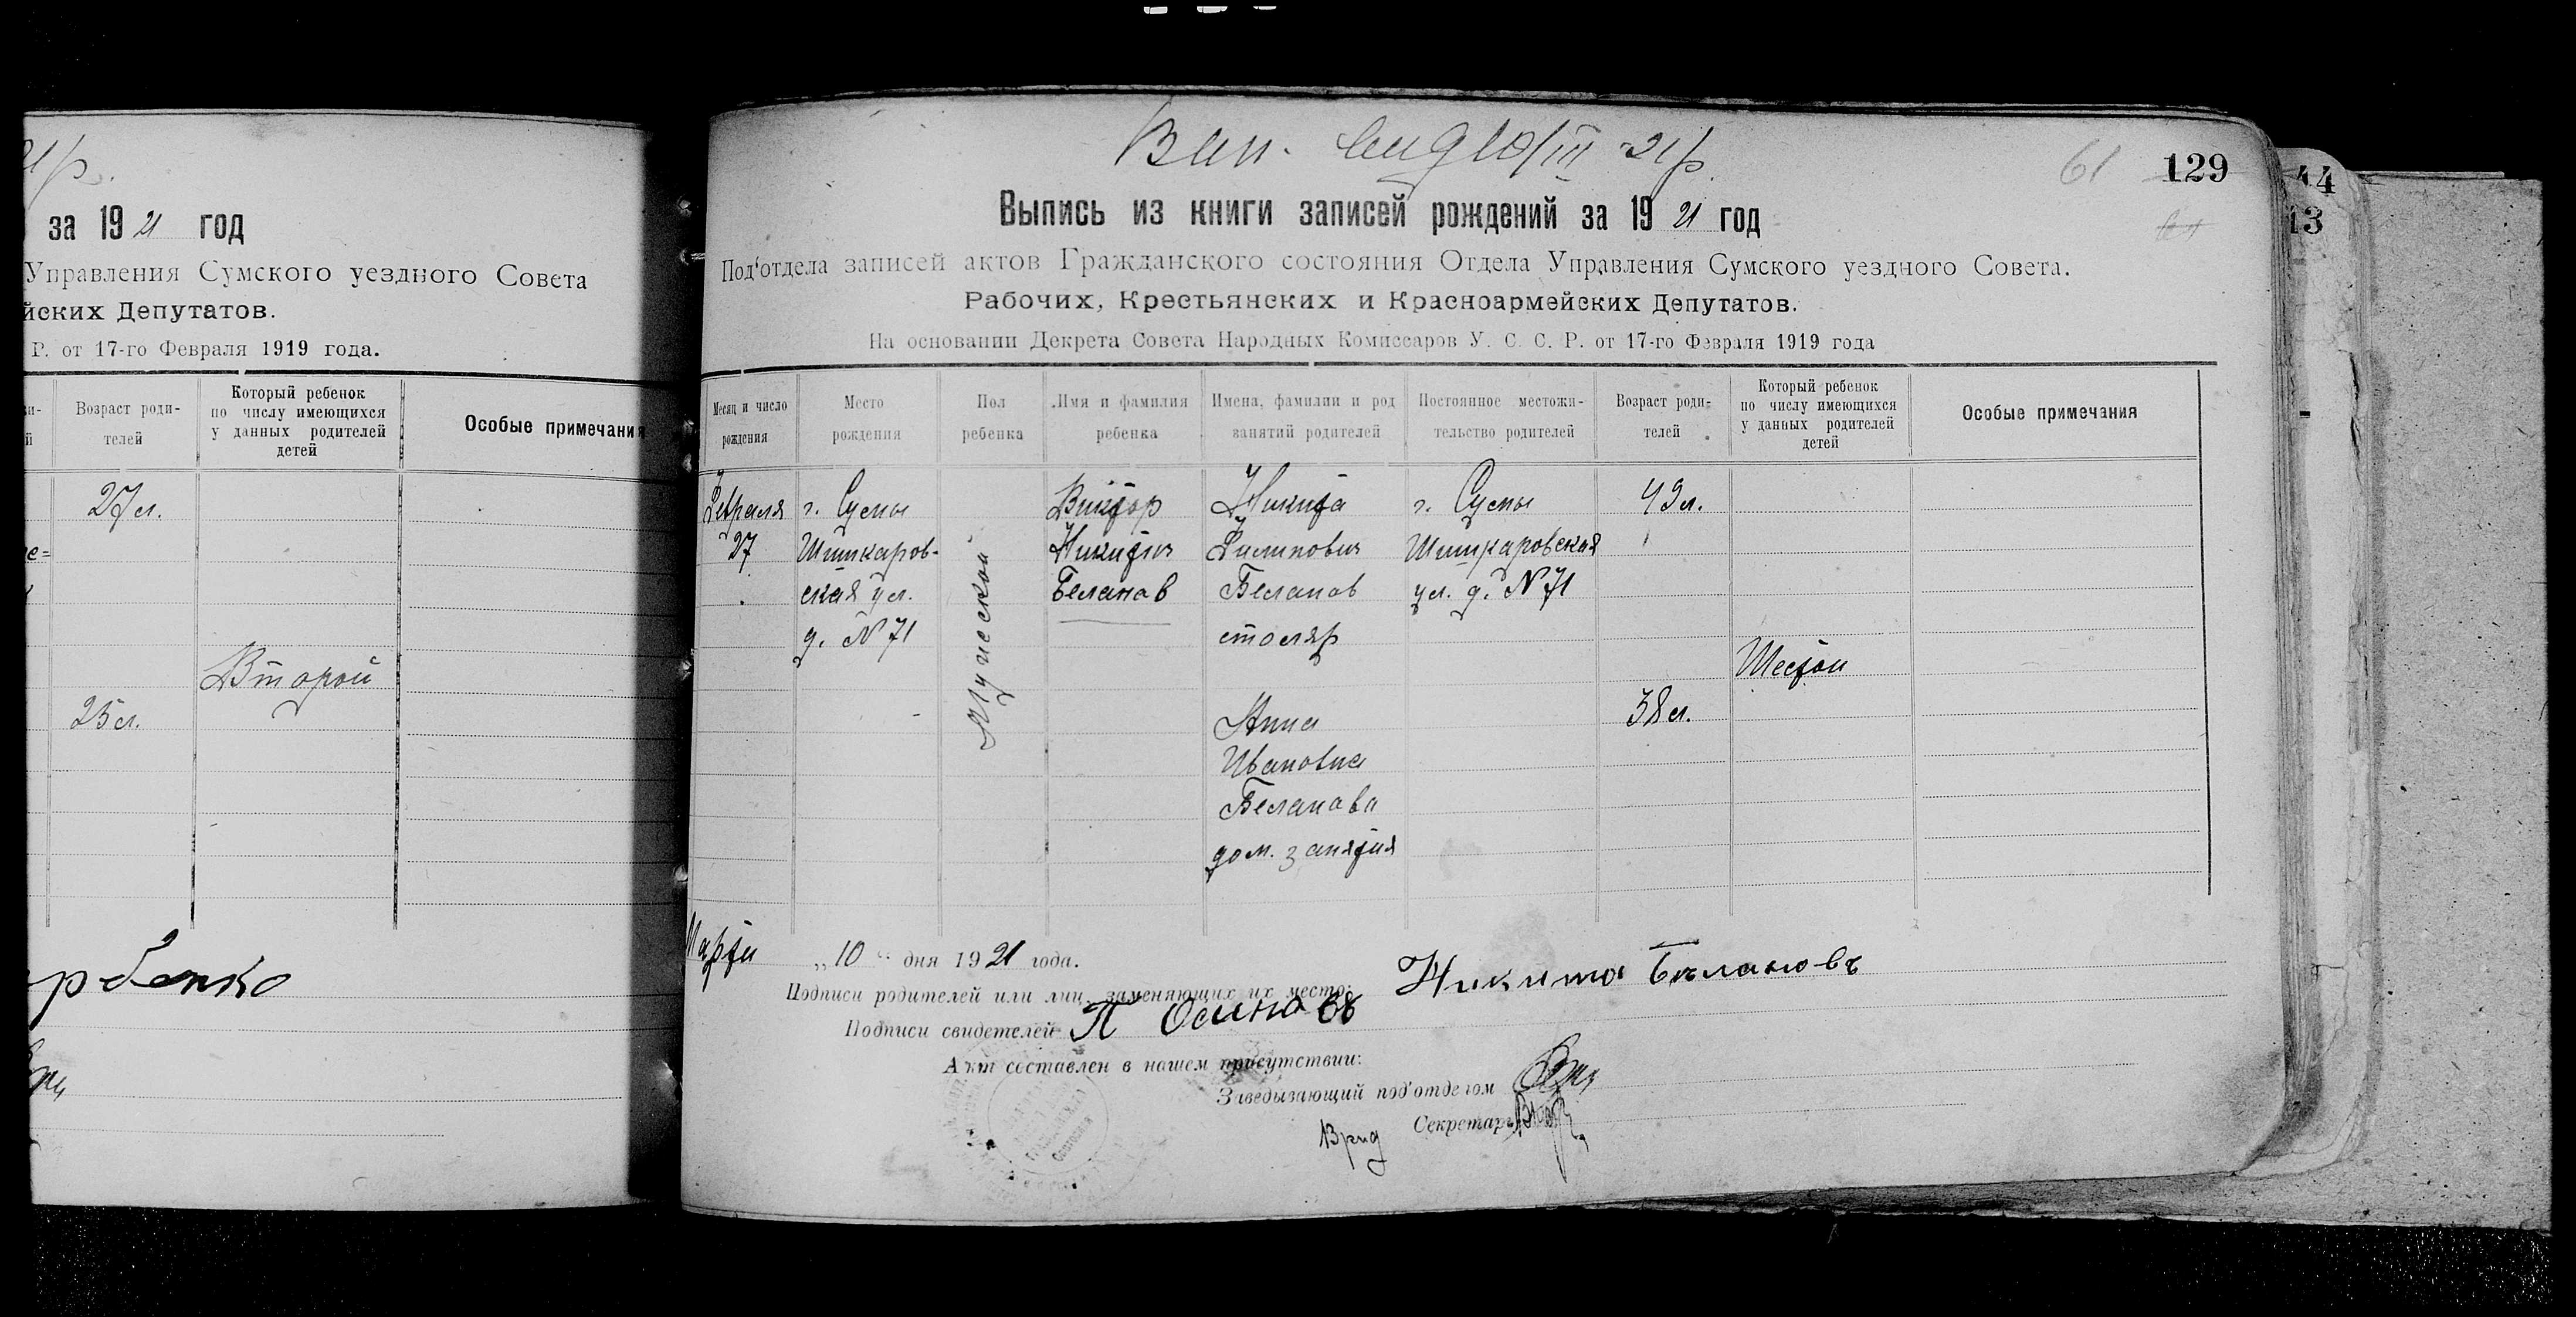 21р.
за 19 21 год
Управления Сумского уездного Совета
йских Депутатов.
Р. от 17-го Февраля 1919 года.
Возраст роди-
телей
Который ребенок
по числу имеющихся
у данных родителей
детей
Особые примечания
27 л.
Второй
25 л.
рбенко
Вып. выд 10/III 21 р.
61
129
44
13
Выпись из книги записей рождений за 19 21 год
Под'отдела записей актов Гражданского состояния Отдела Управления Сумского уездного Совета.
Рабочих, Крестьянских и Красноармейских Депутатов.
На основании Декрета Совета Народных Комиссаров У. С. С. Р. от 17-го Февраля 1919 года
Месяц и число
рождения
Место
рождения
Пол
ребенка
Имя и фамилия
ребенка
Имена, фамилии и род
занятий родителей
Постоянное местожи-
тельство родителей
Возраст роди-
телей
Который ребенок
по числу имеющихся
у данных родителей
детей
Особые примечания
Февраля
27
г. Сумы
Шишкаров-
ская ул.
д. N 71
Мужеской
Виктор
Никитич
Беланов
Никита
Филипович
Беланов
столяр
Анна
Ивановна
Беланова
дом. занятия
г. Сумы
Шишкаровская
ул. д. N 71
49 л.
38 л.
Шестой
Марта „10“ дня 1921 года.
Подписи родителей или лиц, заменяющих их место: Никита Бѣлановъ
Подписи свидетелей П Осиновъ
Акт составлен в нашем присутствии:
Заведывающий под'отделом
Врид Секретарь